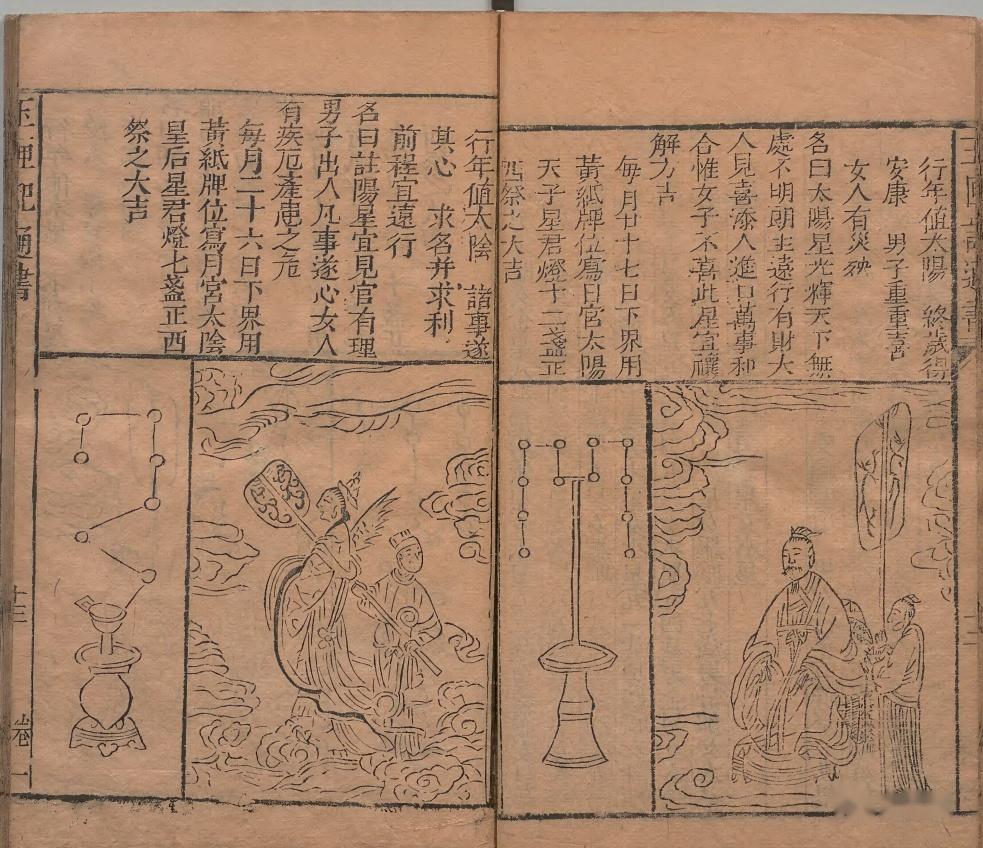 行年值太陽　終歲得
安康　男子重重喜
女人有災殃
名曰太陽星光輝天下無
處不明朝主遠行有財大
人見喜添人進口萬事和
合惟女子不喜此星宜禳
解乃吉
每月廿十七日下界用
黃紙牌位寫日宮太陽
天子星君燈十二盞正
西祭之大吉
十二
行年值太陰　諸事遂
其心　求名并求利
前程宜遠行
名曰註陽星宜見官有理
男子出入凡事遂心女人
有疾厄產厄之危
每月二十六日下界用
黃紙牌位寫月宮太陰
皇后星君燈七盞正西
祭之大吉
玉匣記通書
十三
卷一